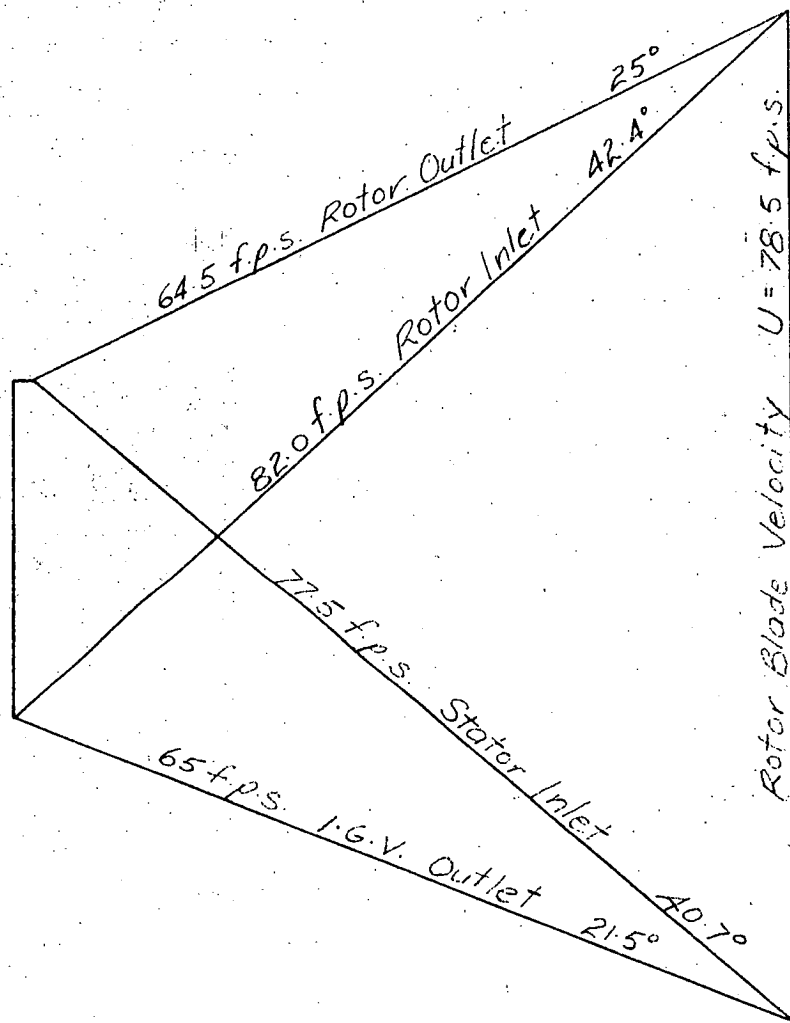 25°
64.5 f.p.s. Rotor Outlet
42.4°
82.0 f.p.s. Rotor Inlet
77.5 f.p.s. Stator Inlet
40.7°
65 f.p.s. I.G.V. Outlet
21.5°
Rotor Blade Velocity U = 78.5 f.p.s.